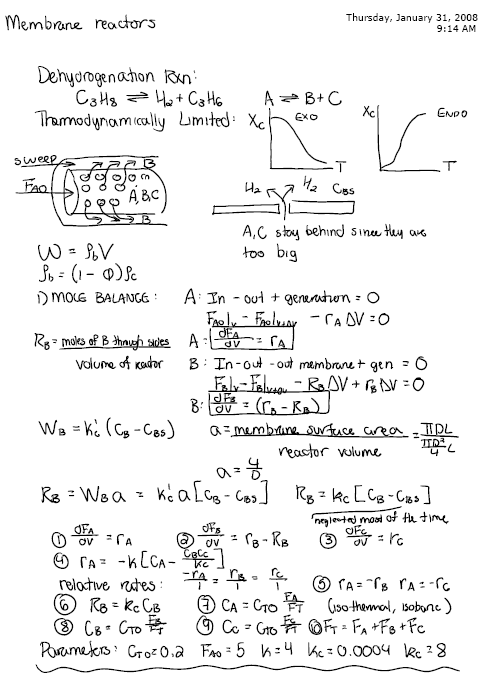 Membrane reactors
Thursday, January 31, 2008
9:14 AM
Dehydrogenation Rxn:
C3H8 ⇌ H2 + C3H6   A ⇌ B + C
Thermodynamically Limited:
Xc EXO T
Xc ENDO T
sweep B
FA0 A,B,C
B
H2 H2 CBS
A,C stay behind since they are
too big
W = ρbV
ρb = (1 - Φ)ρc
1) MOLE BALANCE:   A: In - out + generation = 0
FA0|v - FA0|v+Δv - rA ΔV = 0
RB = moles of B through sides / volume of reactor
A: dFA/dV = rA
B: In - out - out membrane + gen = 0
FB|v - FB|v+Δv - RB ΔV + rB ΔV = 0
B: dFB/dV = (rB - RB)
WB = k'c (CB - CBS)   a = membrane surface area / reactor volume = πDL / (πD²/4 L)
a = 4/D
RB = WB a = k'c a [CB - CBS]   RB = kc [CB - CBS]
neglected most of the time
① dFA/dV = rA   ② dFB/dV = rB - RB   ③ dFC/dV = rC
④ rA = -k[CA - CBCC/KC]
relative rates: -rA/1 = rB/1 = rC/1   ⑤ rA = -rB   rA = -rC
⑥ RB = kc CB   ⑦ CA = CT0 FA/FT   (isothermal, isobaric)
⑧ CB = CT0 FB/FT   ⑨ CC = CT0 FC/FT   ⑩ FT = FA + FB + FC
Parameters: CT0 = 0.2   FA0 = 5   k = 4   KC = 0.0004   kc = 8